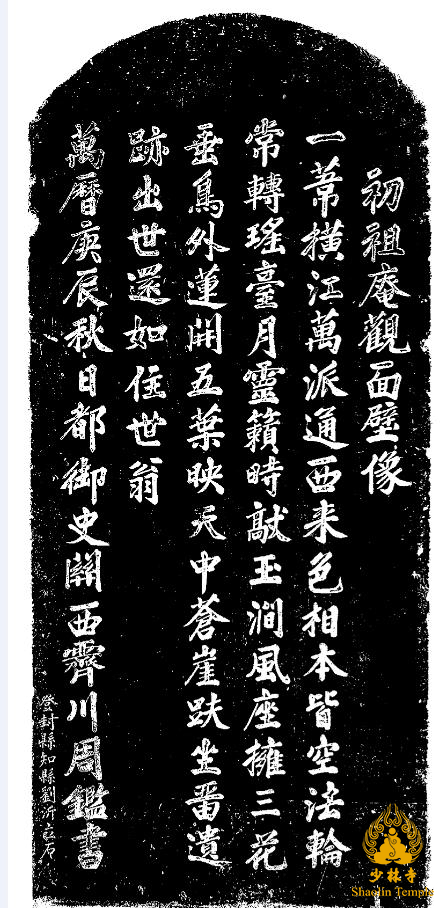 初祖庵觀面壁像
一葦橫江萬派通西來色相本皆空法輪
常轉瑤臺月靈籟時敲玉澗風座擁三花
垂鳥外蓮開五葉映天中蒼崖趺坐畱遺
跡出世還如住世翁
萬曆庚辰秋日都御史關西霽川周鑑書
登封縣知縣劉沂立石
少林寺
Shaolin Temple